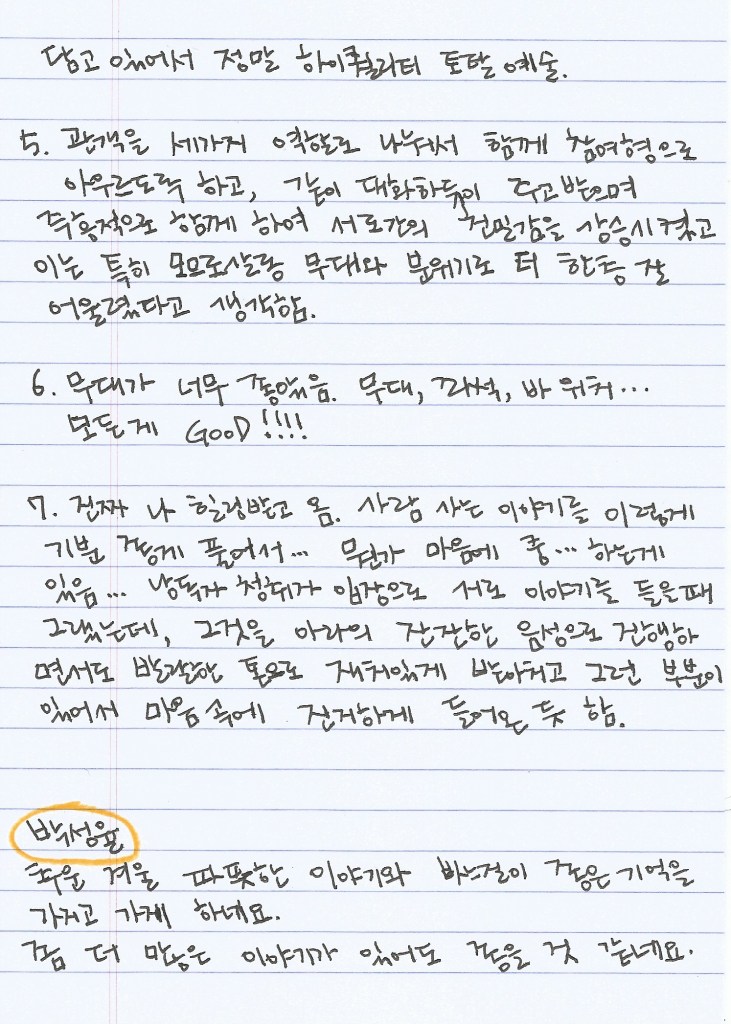 담고 있어서 정말 하이퀄리티 토탈 예술.
5. 관객을 세가지 역할로 나눠서 함께 참여형으로
아우르도록 하고, 같이 대화하듯이 주고받으며
수용적으로 함께 하여 서로간의 친밀감을 상승시켰고
이는 특히 모모로살롱 무대와 분위기로 더 한층 잘
어울렸다고 생각함.
6. 무대가 너무 좋았음. 무대, 객석, 바 위치...
모든게 GooD!!!!
7. 진짜 나 힐링받고 옴. 사람 사는 이야기를 이렇게
기분 좋게 풀어서... 뭔가 마음에 쿵... 하는게
있음... 낭독자 청취자 입장으로 서로 이야기를 들을때
그랬는데, 그것을 아라의 잔잔한 음성으로 진행하
면서도 발랄한 톤으로 재치있게 받아치고 그런 부분이
있어서 마음속에 진지하게 들어온 듯 함.
박성율
추운 겨울 따뜻한 이야기와 좋은 기억을
가지고 가게 하네요.
좀 더 많은 이야기가 있어도 좋을 것 같네요.